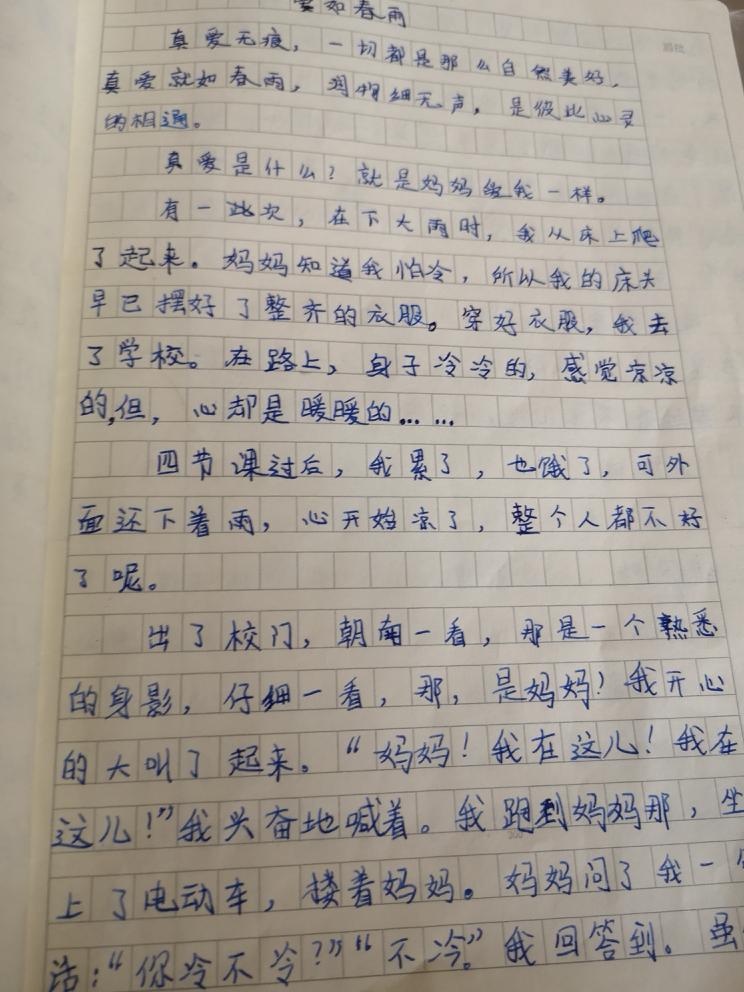 爱如春雨
真爱无痕，一切都是那么自然美好，
真爱就如春雨，润物细无声，是彼此心灵
的相通。
真爱是什么？就是妈妈给我一样。
有一此次，在下大雨时，我从床上爬
了起来。妈妈知道我怕冷，所以我的床头
早已摆好了整齐的衣服。穿好衣服，我去
了学校。在路上，身子冷冷的，感觉凉凉
的，但，心却是暖暖的……
四节课过后，我累了，也饿了，可外
面还下着雨，心开始凉了，整个人都不好
了呢。
出了校门，朝南一看，那是一个熟悉
的身影，仔细一看，那，是妈妈！我开心
的大叫了起来。“妈妈！我在这儿！我在
这儿！”我兴奋地喊着。我跑到妈妈那，坐
上了电动车，搂着妈妈。妈妈问了我一
话：“你冷不冷？”“不冷。”我回答到。虽